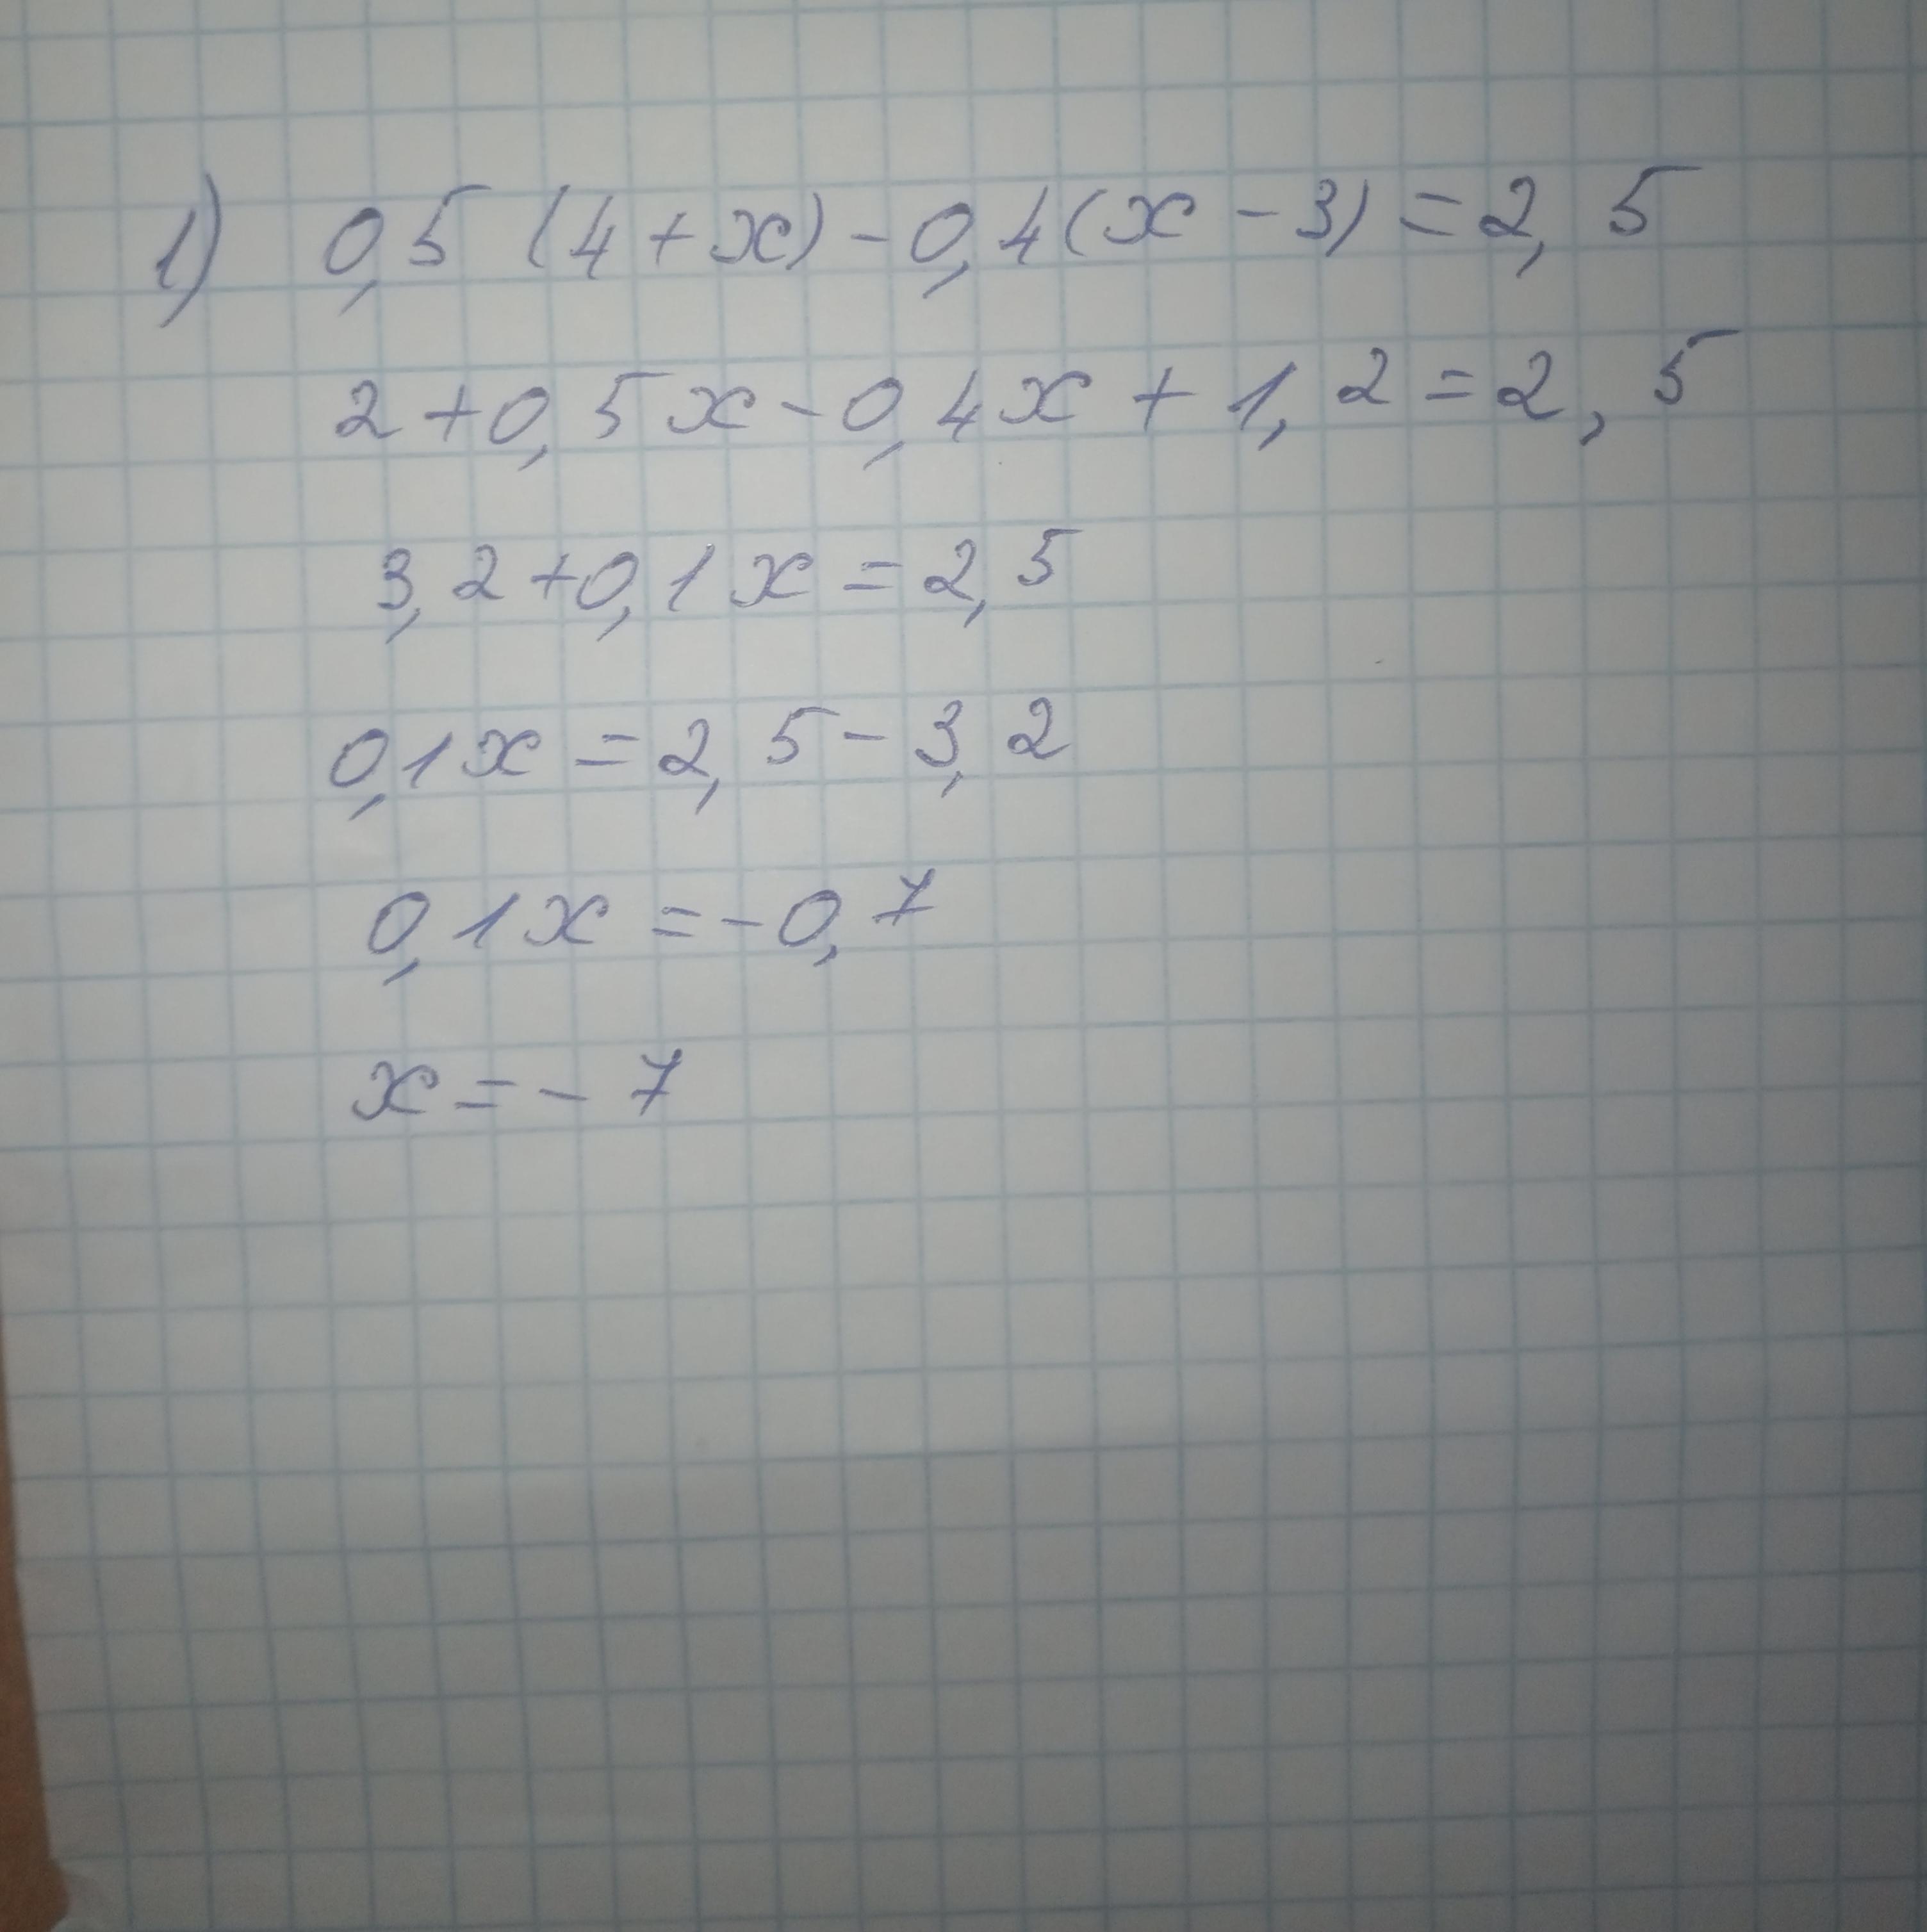 1) 0,5 (4 + x) - 0,4 (x - 3) = 2,5
2 + 0,5x - 0,4x + 1,2 = 2,5
3,2 + 0,1x = 2,5
0,1x = 2,5 - 3,2
0,1x = -0,7
x = -7